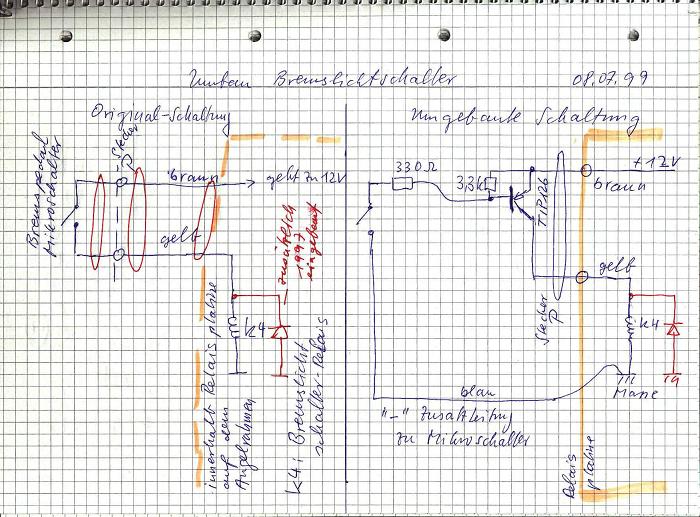 Umbau Bremslichtschalter 08.07.99
Original-Schaltung
Umgebaute Schaltung
Bremspedal
Mikroschalter
Stecker
P
braun
geht zu 12V
gelb
zusätzlich
1997
eingebaut
K4
innerhalb Relais platine
auf dem
K4: Bremslicht
schalter-Relais
330Ω
3,3k
TIP126
+12V
braun
gelb
Stecker
P
K4
Masse
blau
"-" Zusatzleitung
zu Mikroschalter
Relais
platine